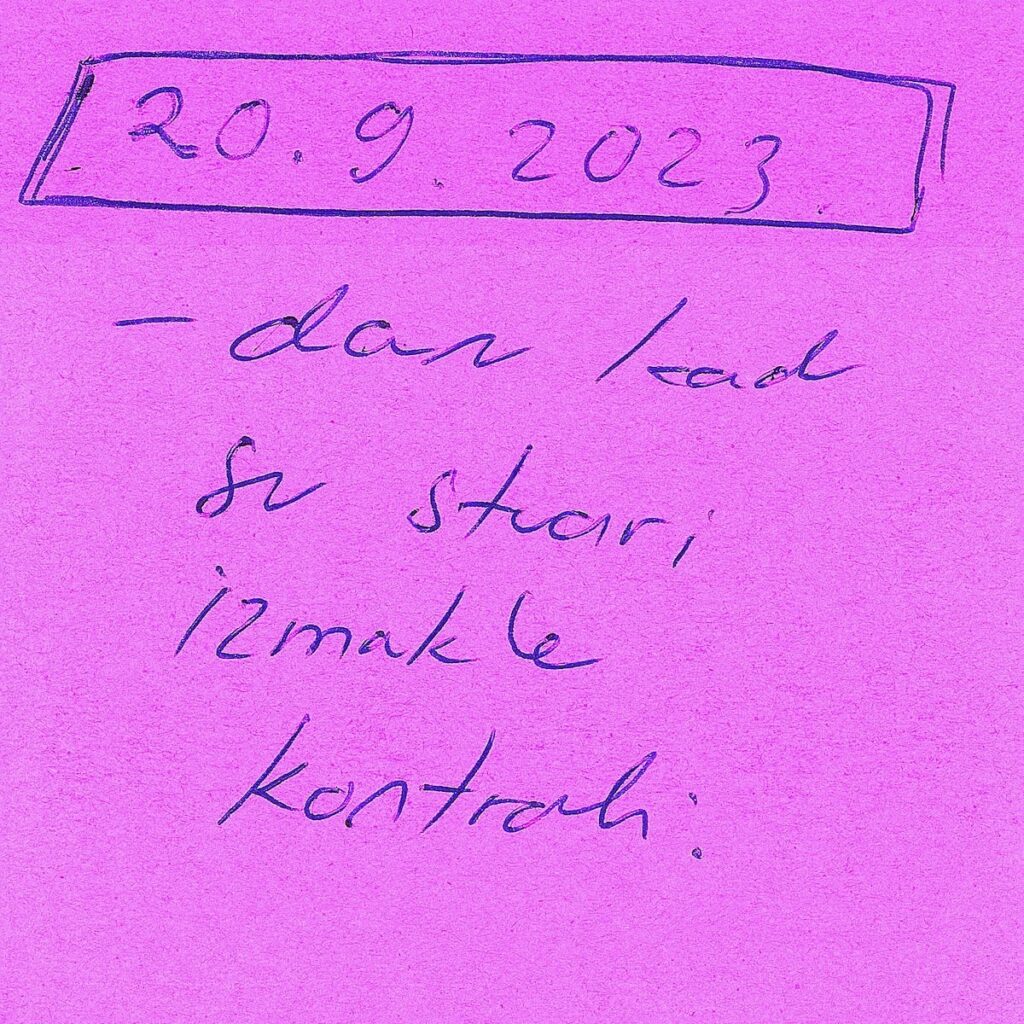 20.9.2023.
- dan kad
su stvari
izmakle
kontroli.